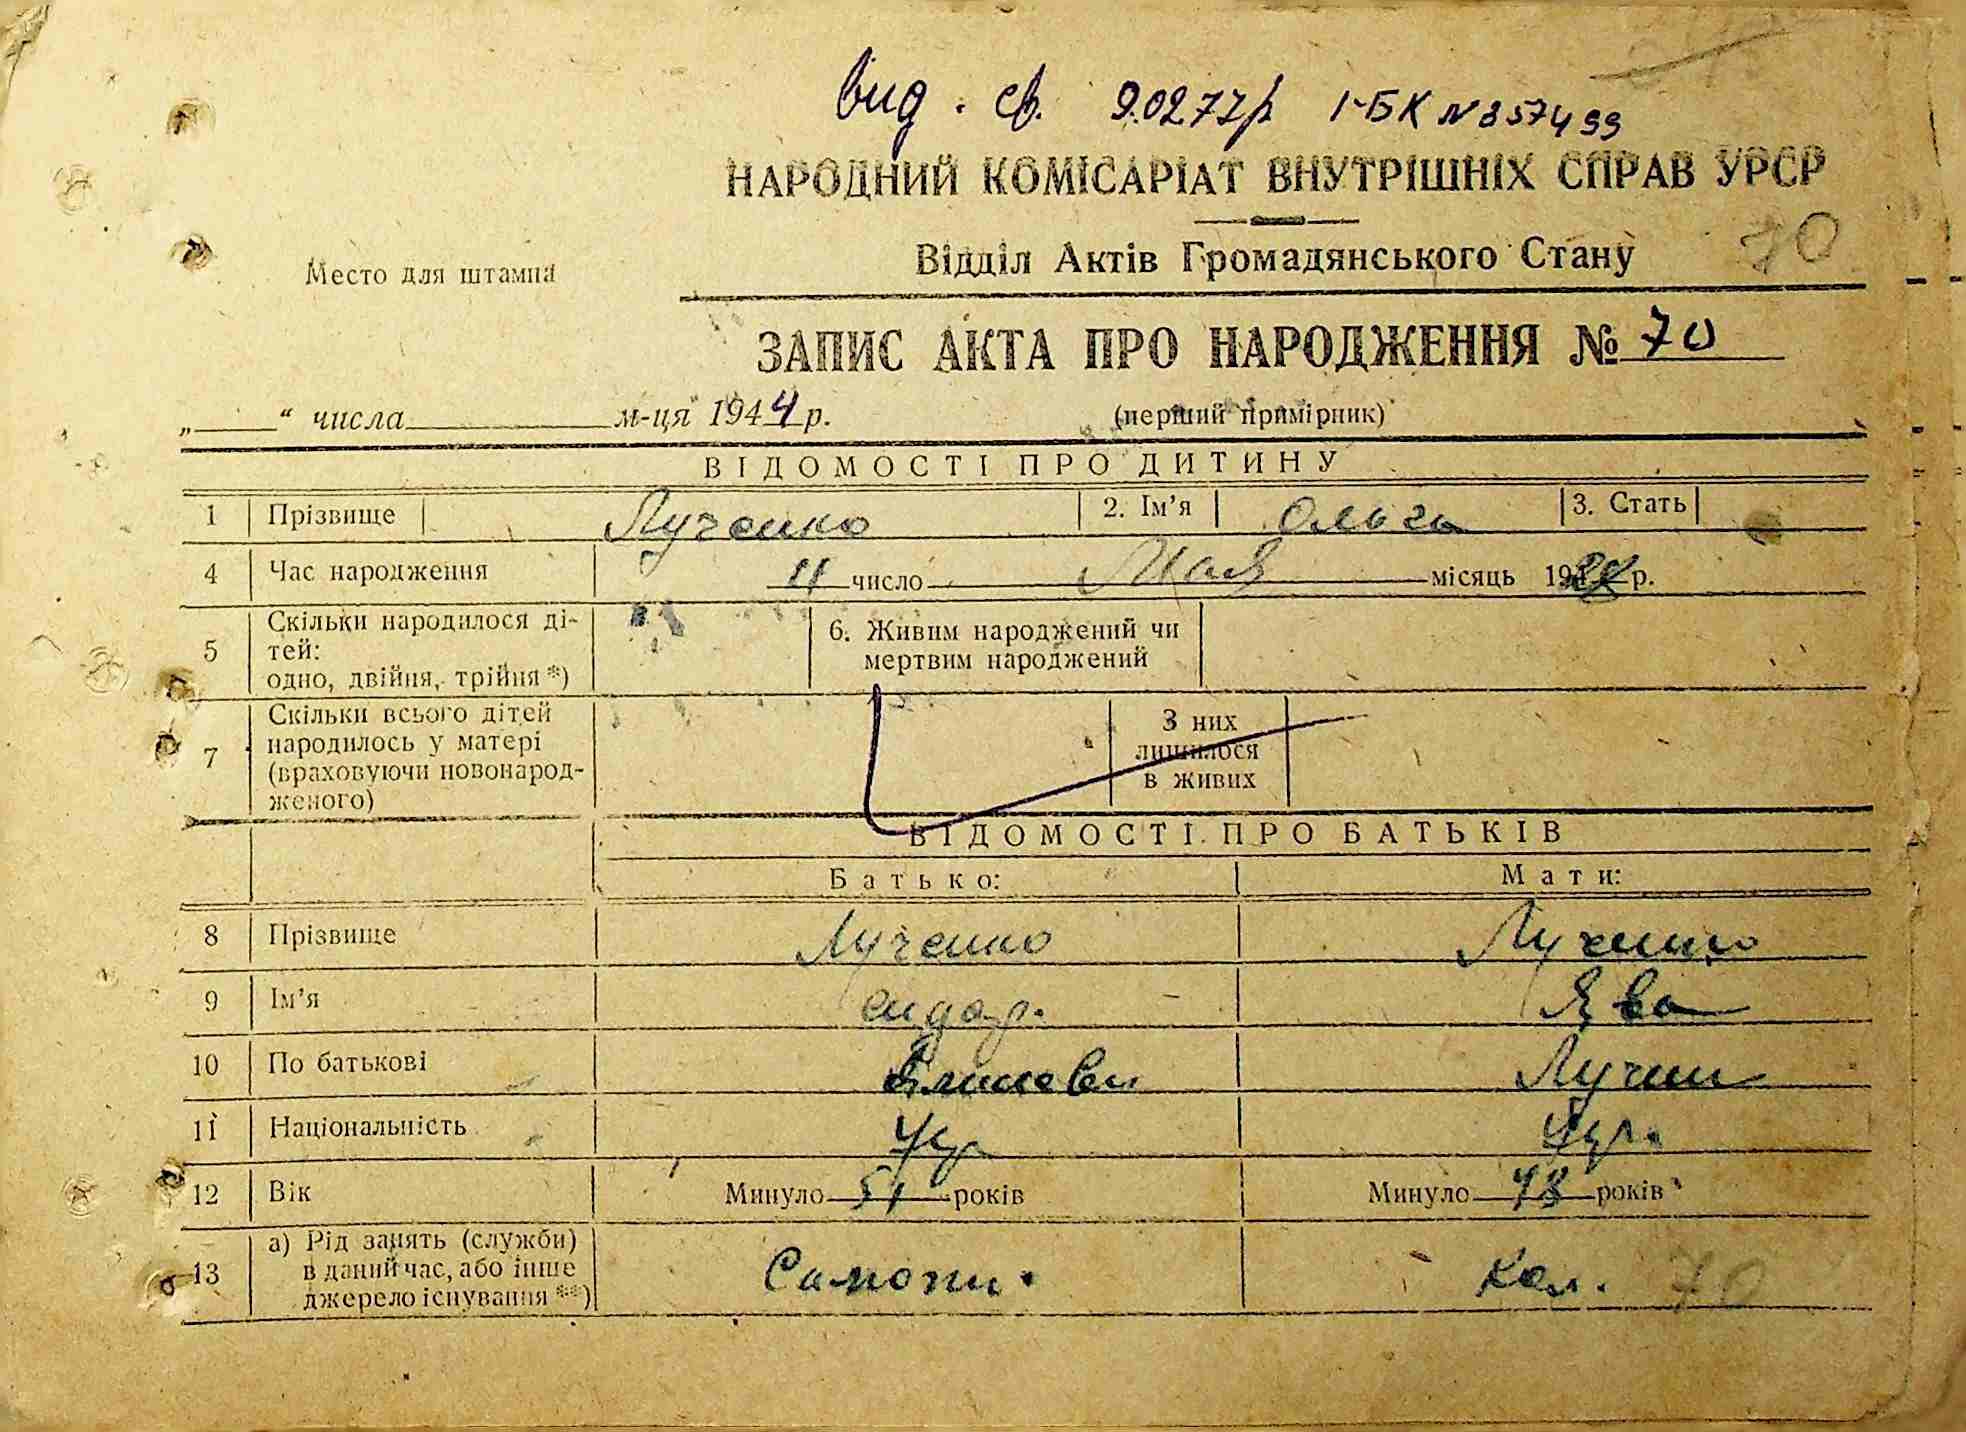 вид. св. 9.02.77р. І-БК № 857499
НАРОДНИЙ КОМІСАРІАТ ВНУТРІШНІХ СПРАВ УРСР
Відділ Актів Громадянського Стану 70
Место для штампа
ЗАПИС АКТА ПРО НАРОДЖЕННЯ № 70
„ “ числа м-ця 1944 р. (перший примірник)
ВІДОМОСТІ ПРО ДИТИНУ
1 Прізвище Лученко 2. Ім’я Ольга 3. Стать
4 Час народження 11 число Мая місяць 19 р.
5 Скільки народилося ді-
тей:
одно, двійня, трійня *)
6. Живим народжений чи
мертвим народжений
7 Скільки всього дітей
народилось у матері
(враховуючи новонарод-
женого)
З них
лишилося
в живих
ВІДОМОСТІ ПРО БАТЬКІВ
Батько: Мати:
8 Прізвище Лученко Лученко
9 Ім’я Сидор.
10 По батькові
11 Національність Укр Укр.
12 Вік Минуло 51 років Минуло 48 років
13 а) Рід занять (служби)
в даний час, або інше
джерело існування **)
Кол. 70